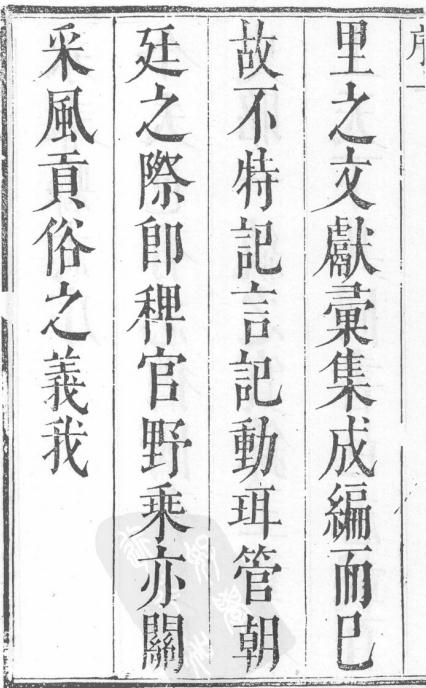 里之文獻彙集成編而已
故不特記言記動珥管朝
廷之際卽稗官野乘亦關
采風貢俗之義我